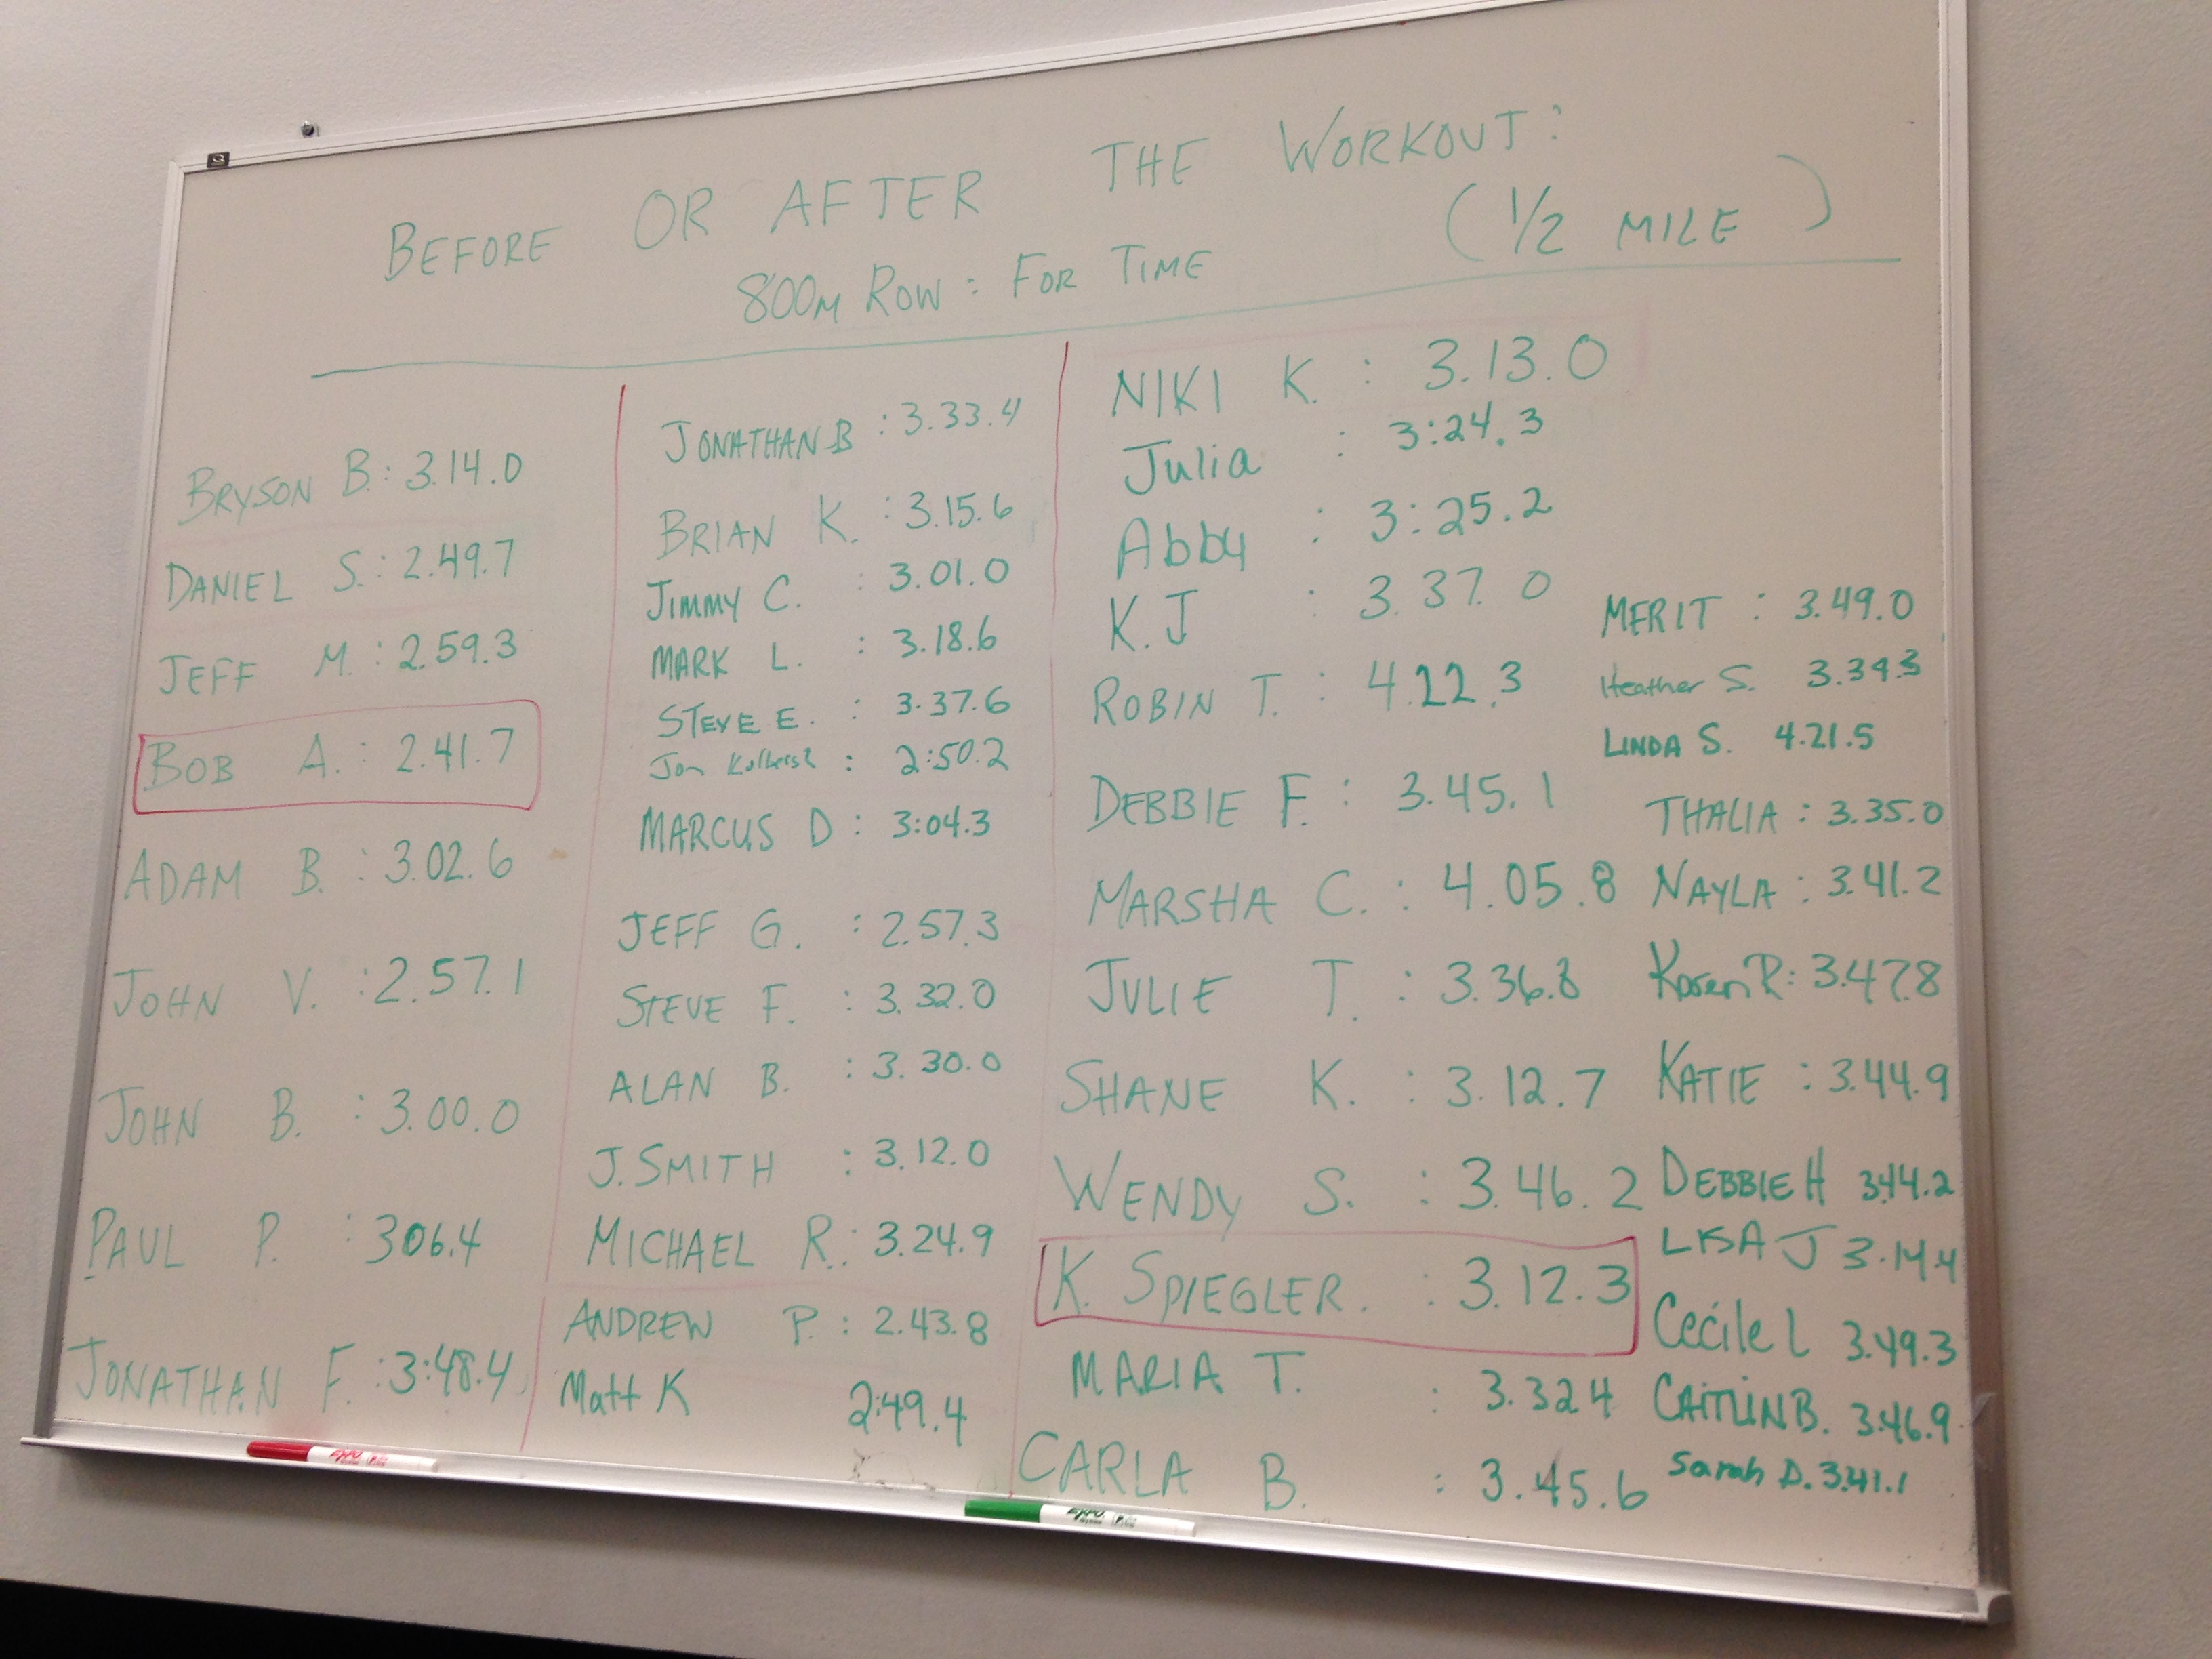 BEFORE OR AFTER THE WORKOUT:
800M ROW: FOR TIME (1/2 MILE)
BRYSON B.: 3.14.0
DANIEL S.: 2.49.7
JEFF M.: 2.59.3
BOB A.: 2.41.7
ADAM B.: 3.02.6
JOHN V.: 2.57.1
JOHN B.: 3.00.0
PAUL P.: 306.4
JONATHAN F.: 3:48.4
JONATHAN B: 3.33.4
BRIAN K.: 3.15.6
JIMMY C.: 3.01.0
MARK L.: 3.18.6
STEVE E.: 3.37.6
Jon : 2:50.2
MARCUS D: 3:04.3
JEFF G.: 2.57.3
STEVE F.: 3.32.0
ALAN B.: 3.30.0
J. SMITH: 3.12.0
MICHAEL R.: 3.24.9
ANDREW P.: 2.43.8
Matt K 2:49.4
NIKI K.: 3.13.0
Julia: 3:24.3
Abby: 3:25.2
K.J: 3.37.0
ROBIN T.: 4.22.3
DEBBIE F.: 3.45.1
MARSHA C.: 4.05.8
JULIE T.: 3.36.8
SHANE K.: 3.12.7
WENDY S.: 3.46.2
K. SPIEGLER.: 3.12.3
MARIA T.: 3.324
CARLA B.: 3.45.6
MERIT: 3.49.0
Heather S. 3.39.3
LINDA S. 4.21.5
THALIA: 3.35.0
NAYLA: 3.41.2
Karen R: 3.47.8
KATIE: 3.44.9
DEBBIE H 3.44.2
LISA J 3.14.4
Cecile L 3.49.3
CAITLIN B. 3.46.9
Sarah D. 3.41.1
EXPO
EXPO